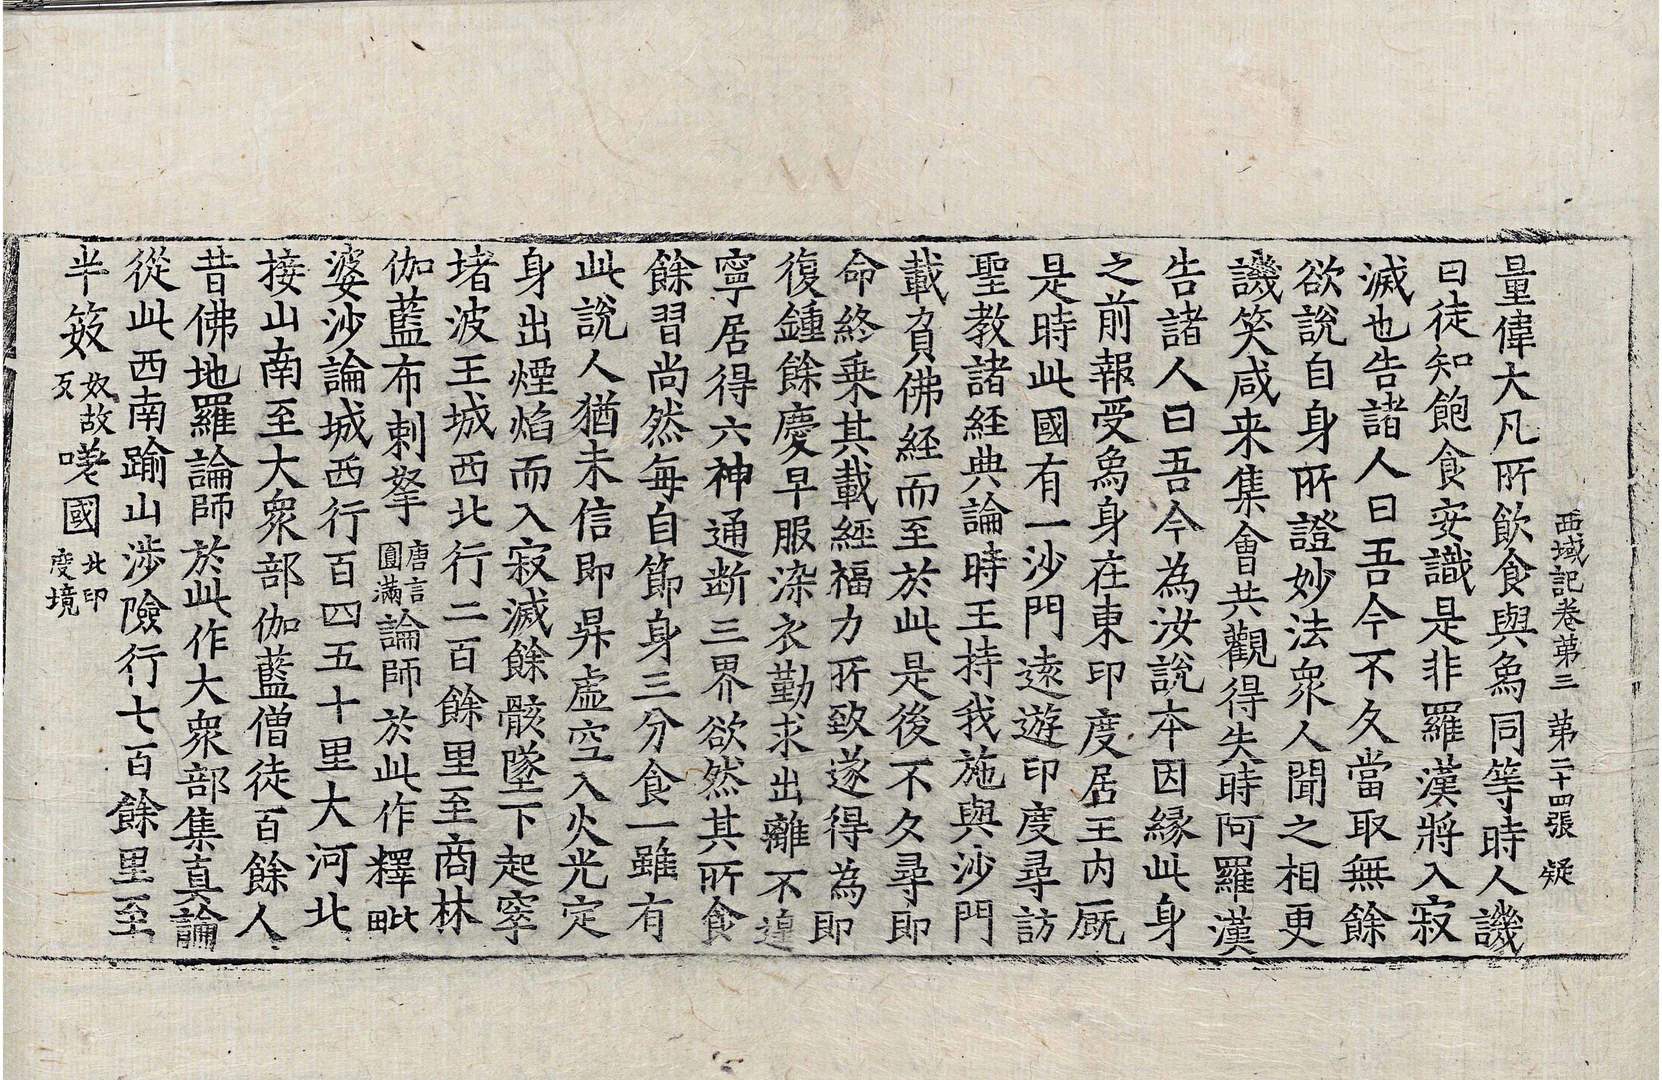 西域記卷第三 第二十四張 疑
量偉大凡所飲食與象同等時人譏
曰徒知飽食安識是非羅漢將入寂
滅也告諸人曰吾今不久當取無餘
欲說自身所證妙法衆人聞之相更
譏笑咸来集會共觀得失時阿羅漢
告諸人曰吾今為汝說本因緣此身
之前報受象身在東印度居王内厩
是時此國有一沙門遠遊印度尋訪
聖教諸經典論時王持我施與沙門
載負佛經而至於此是後不久尋即
命終乘其載經福力所致遂得為即
復鍾餘慶早服染衣勤求出離不遑
寧居得六神通断三界欲然其所食
餘習尚然每自節身三分食一雖有
此說人猶未信即昇虛空入火光定
身出煙焰而入寂滅餘骸墜下起窣
堵波王城西北行二百餘里至商林
伽藍布剌拏唐言圓滿論師於此作釋毗
婆沙論城西行百四五十里大河北
接山南至大衆部伽藍僧徒百餘人
昔佛地羅論師於此作大衆部集真論
從此西南踰山涉險行七百餘里至
半笯奴故反嗟國北印度境